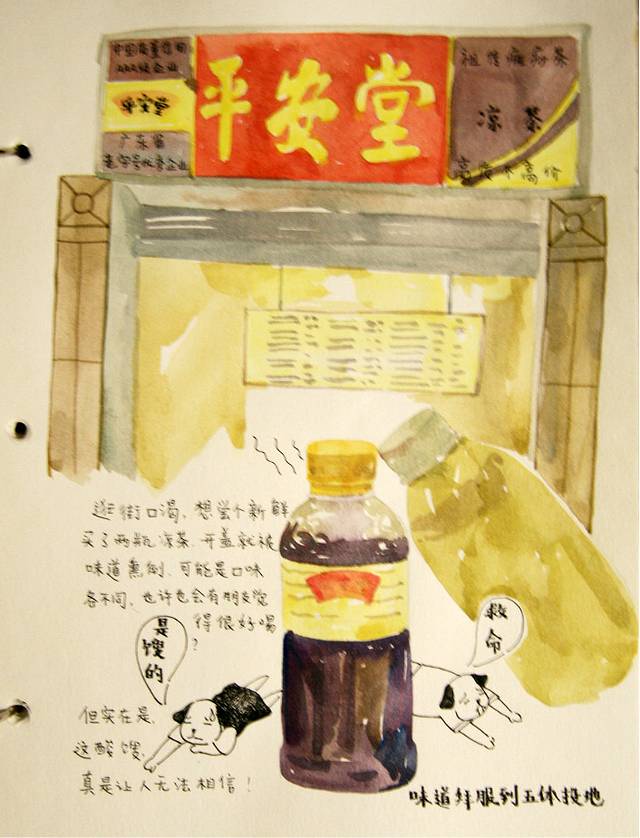 中国质量信用
AAA级企业
平安堂
广东省
老字号优秀企业
平安堂
祖传癍痧茶
凉茶
高质不高价
逛街口渴,想尝个新鲜
买了两瓶凉茶,开盖就被
味道熏倒,可能是口味
各不同,也许也会有朋友觉
得很好喝
?
是馊的
救命
但实在是,
这酸馊,
真是让人无法相信!
味道拜服到五体投地